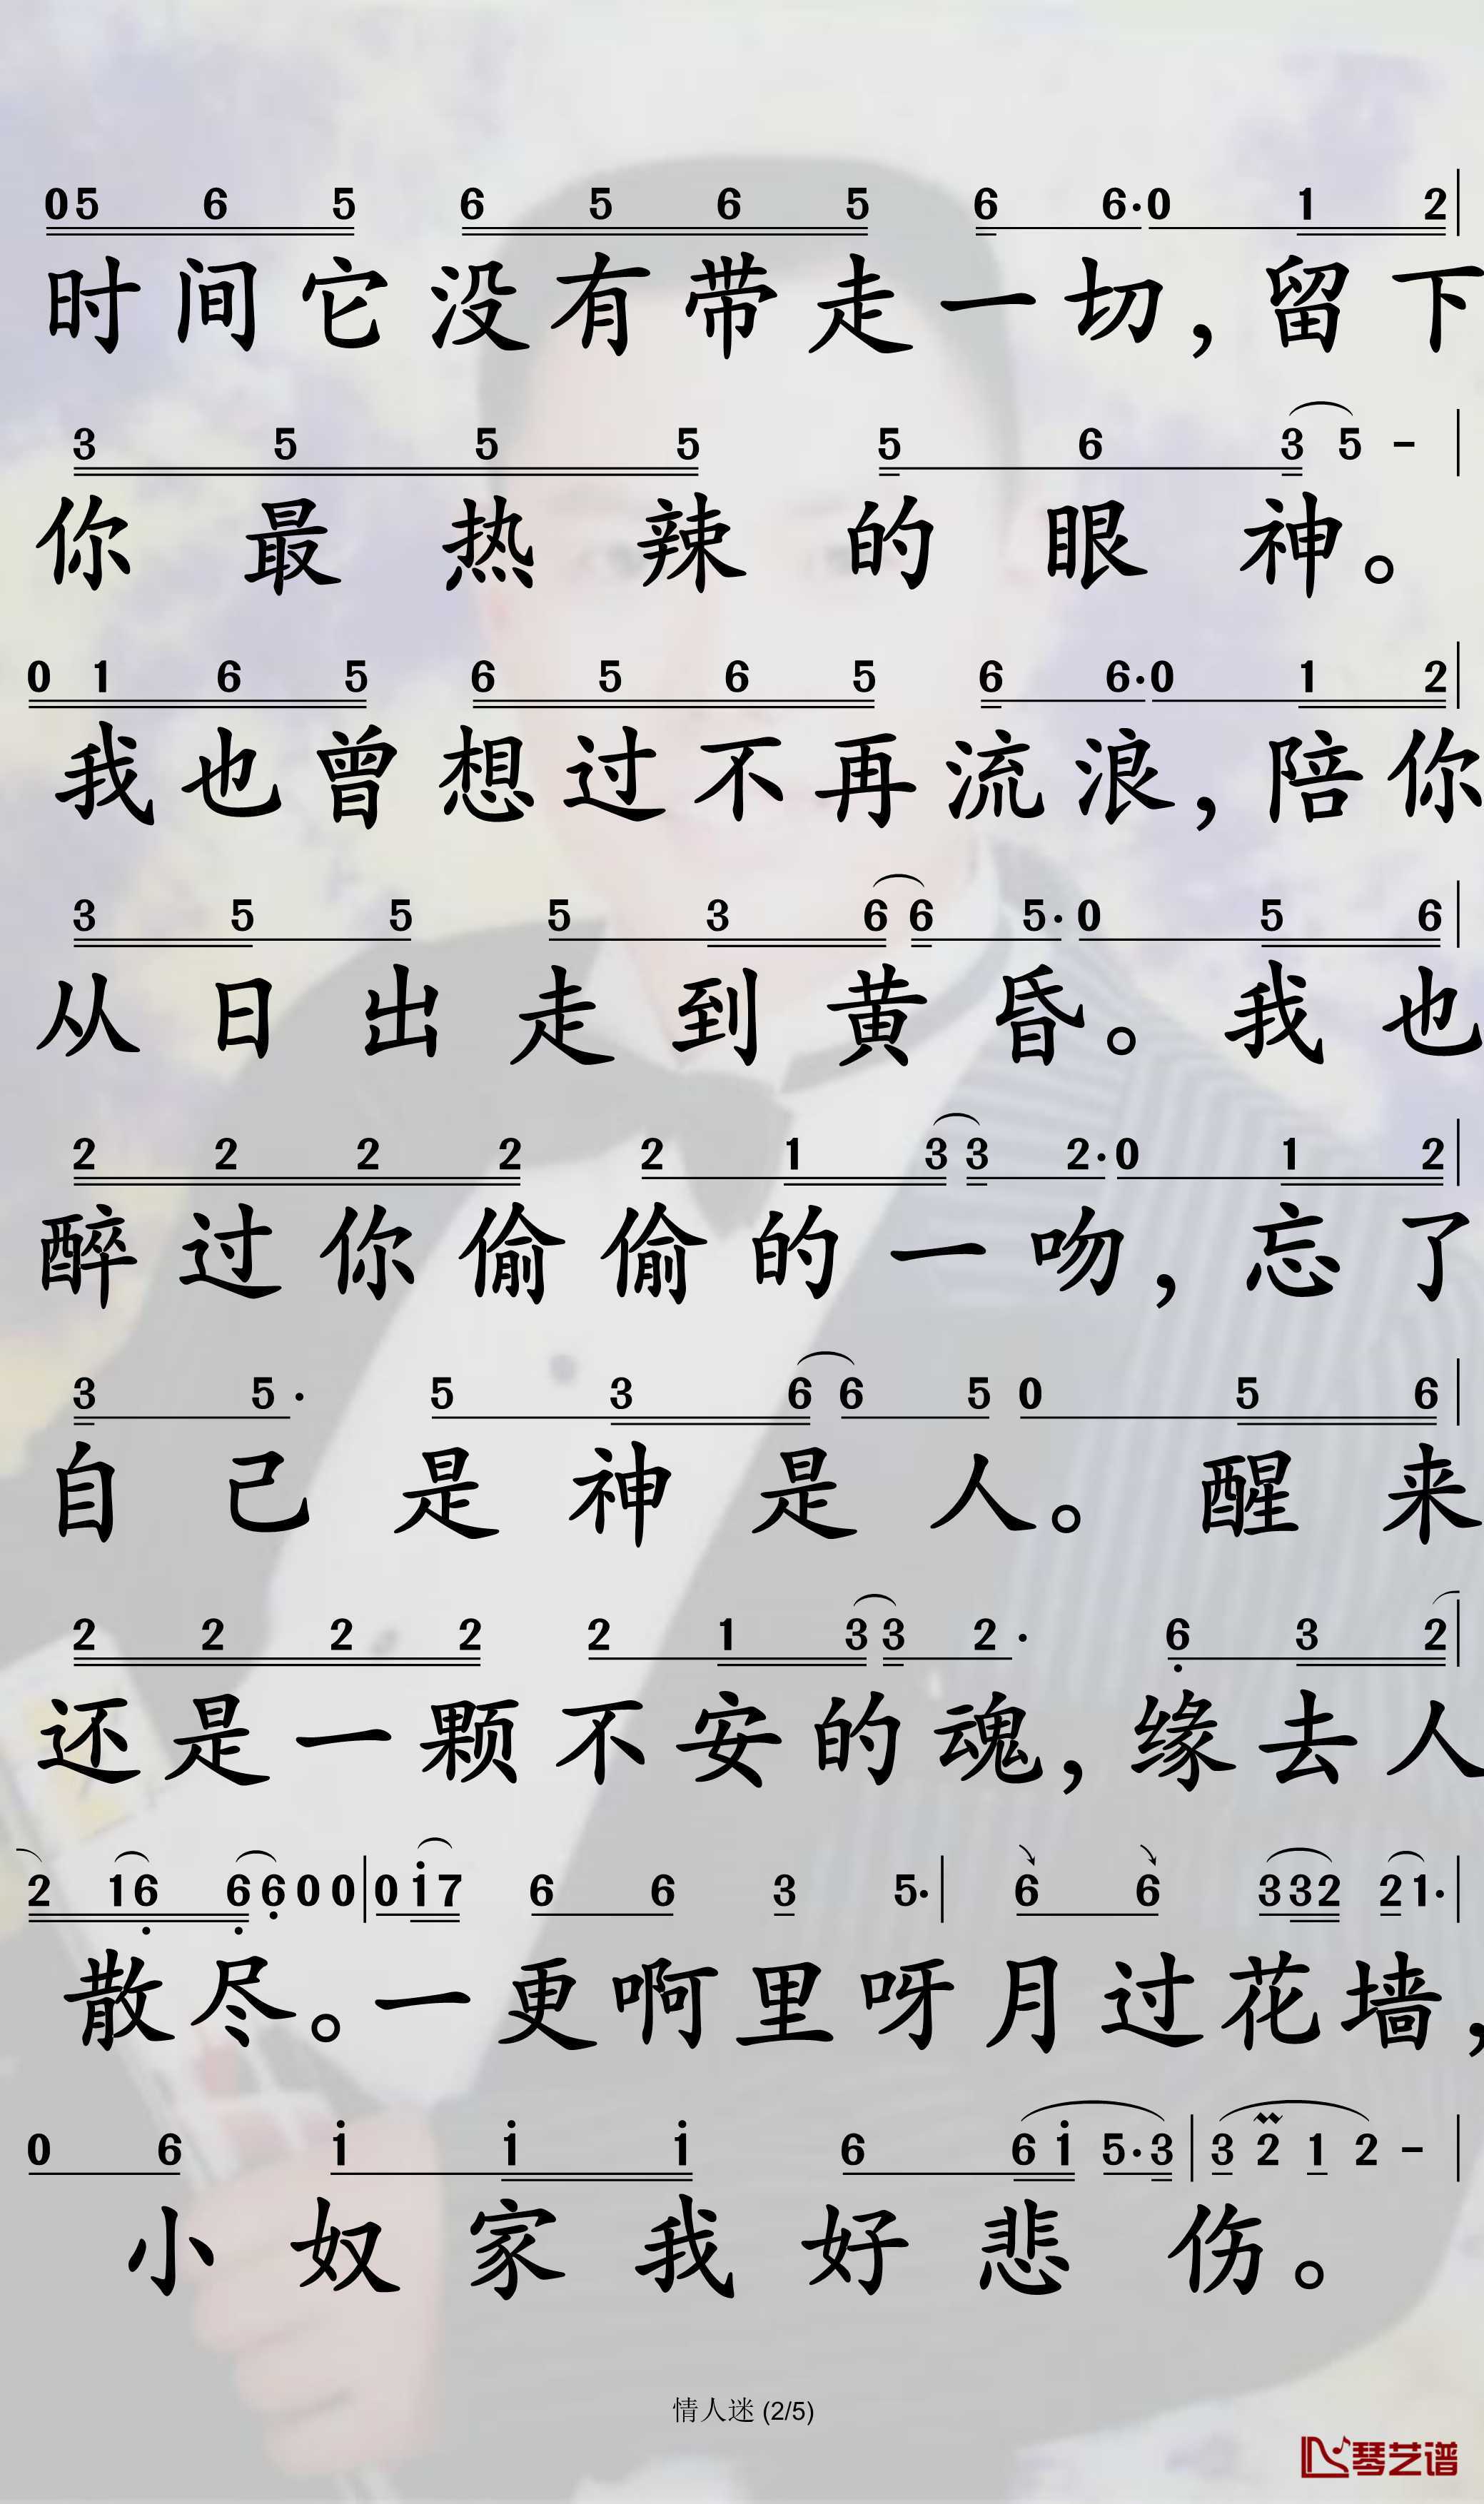 05 6 5 6 5 6 5 6 6·0 1 2
时间它没有带走一切,留下
3 5 5 5 5 6 3 5 -
你最热辣的眼神。
0 1 6 5 6 5 6 5 6 6·0 1 2
我也曾想过不再流浪,陪你
3 5 5 5 3 6 6 5·0 5 6
从日出走到黄昏。我也
2 2 2 2 2 1 3 3 2·0 1 2
醉过你偷偷的一吻,忘了
3 5· 5 3 6 6 5 0 5 6
自己是神是人。醒来
2 2 2 2 2 1 3 3 2· 6 3 2
还是一颗不安的魂,缘去人
2 16 6 6 0 0 0 17 6 6 3 5· 6 6 332 21·
散尽。一更啊里呀月过花墙,
0 6 1 1 1 6 6 1 5·3 3 2 1 2 -
小奴家我好悲伤。
情人迷 (2/5)
琴艺谱